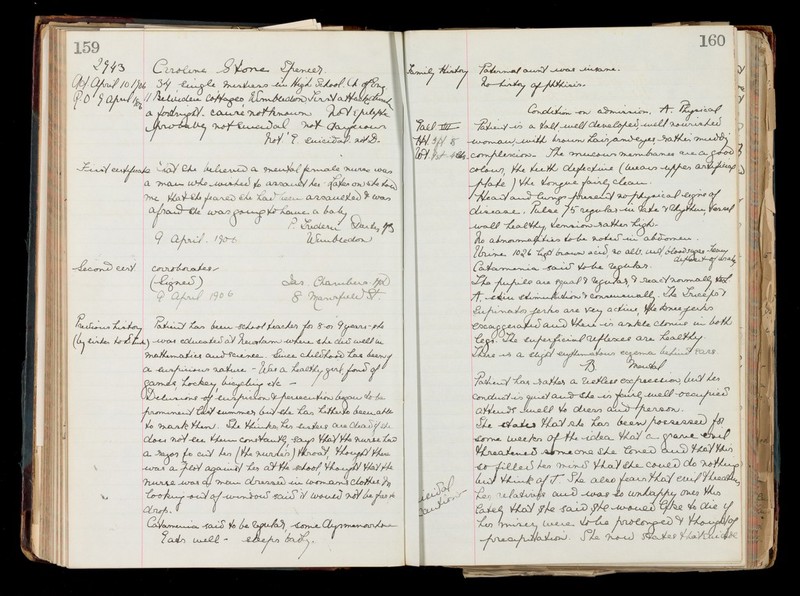 159
2943 Caroline Stones Spencer
Adt April 10 1906 34 single mistress in High School. Ch of Eng
P.O. 9 April 1906 11 Belvidere Cottages Wimbledon. First attack about
a fortnight. cause not known Not Epileptic
probably not suicidal not dangerous
Not E. suicidal not D.
First certificate that she believed a mental female nurse was
a man who wished to assault her. Later on she told
me that she feared she had been assaulted & was
afraid she was going to have a baby
9 April. 1906 Wimbledon
Second cert corroborates
(Signed) Jas. Chambers MD
9 April 1906 8 Mansfield St
Previous history Patient has been school teacher for 8 or 9 years - she
(by sister to ) was educated at Newnham where she did well in
mathematics and science. Since childhood has been of
a suspicious nature - Was a healthy girl fond of
games, hockey bicycling etc -
Delusions of suspicion & persecution began to be
prominent last summer but she has hitherto been able
to mask them. She thinks her sisters are dead if she
does not see them constantly, says that the nurse had
a razor to cut her (the nurse's) throat, thought there
was a plot against her at the school, thought that the
nurse was a man dressed in woman's clothes &
looking out of window said it would not be far to
drop.
Catamenia said to be regular, some dysmenorrhoea
Eats well - sleeps badly.
160
Family History Paternal aunt was insane.
No history of phthisis.
Condition on admission. A. Physical
Patient is a tall well developed, well nourished
woman, with brown hair, and eyes, rather muddy
complexion. The mucous membranes are a good
colour, the teeth defective (wears upper artificial
plate) & the tongue fairly clean.
Heart and lungs present no physical signs of
disease. Pulse 75 regular in rate & rhythm, vessel
wall healthy tension rather high.
No abnormalities to be noted in abdomen.
Urine 1026 light brown acid, no alb. no blood sugar - heavy
deposit of urates
Catamenia said to be regular.
The pupils are equal & regular, & react normally to L
A. skin stimulation & consensually. The Triceps &
Supinator jerks are very active, the knee jerks
exaggerated and there is ankle clonus in both
legs. The superficial reflexes are healthy.
There is a slight erythematous eczema behind ears
B Mental
Patient has rather a listless expression, but her
conduct is quiet and she is fairly well-occupied
attends well to dress and person.
She states that she has been possessed for
some weeks of the idea that a grave evil
threatened someone she loved and that this
so filled her mind that she could do nothing
but think of it. She also fears that evil threatens
her relatives and was so unhappy over this
lately that she said she would like to die if
her misery were to be prolonged & thought of
precipitation. She now states that suicide